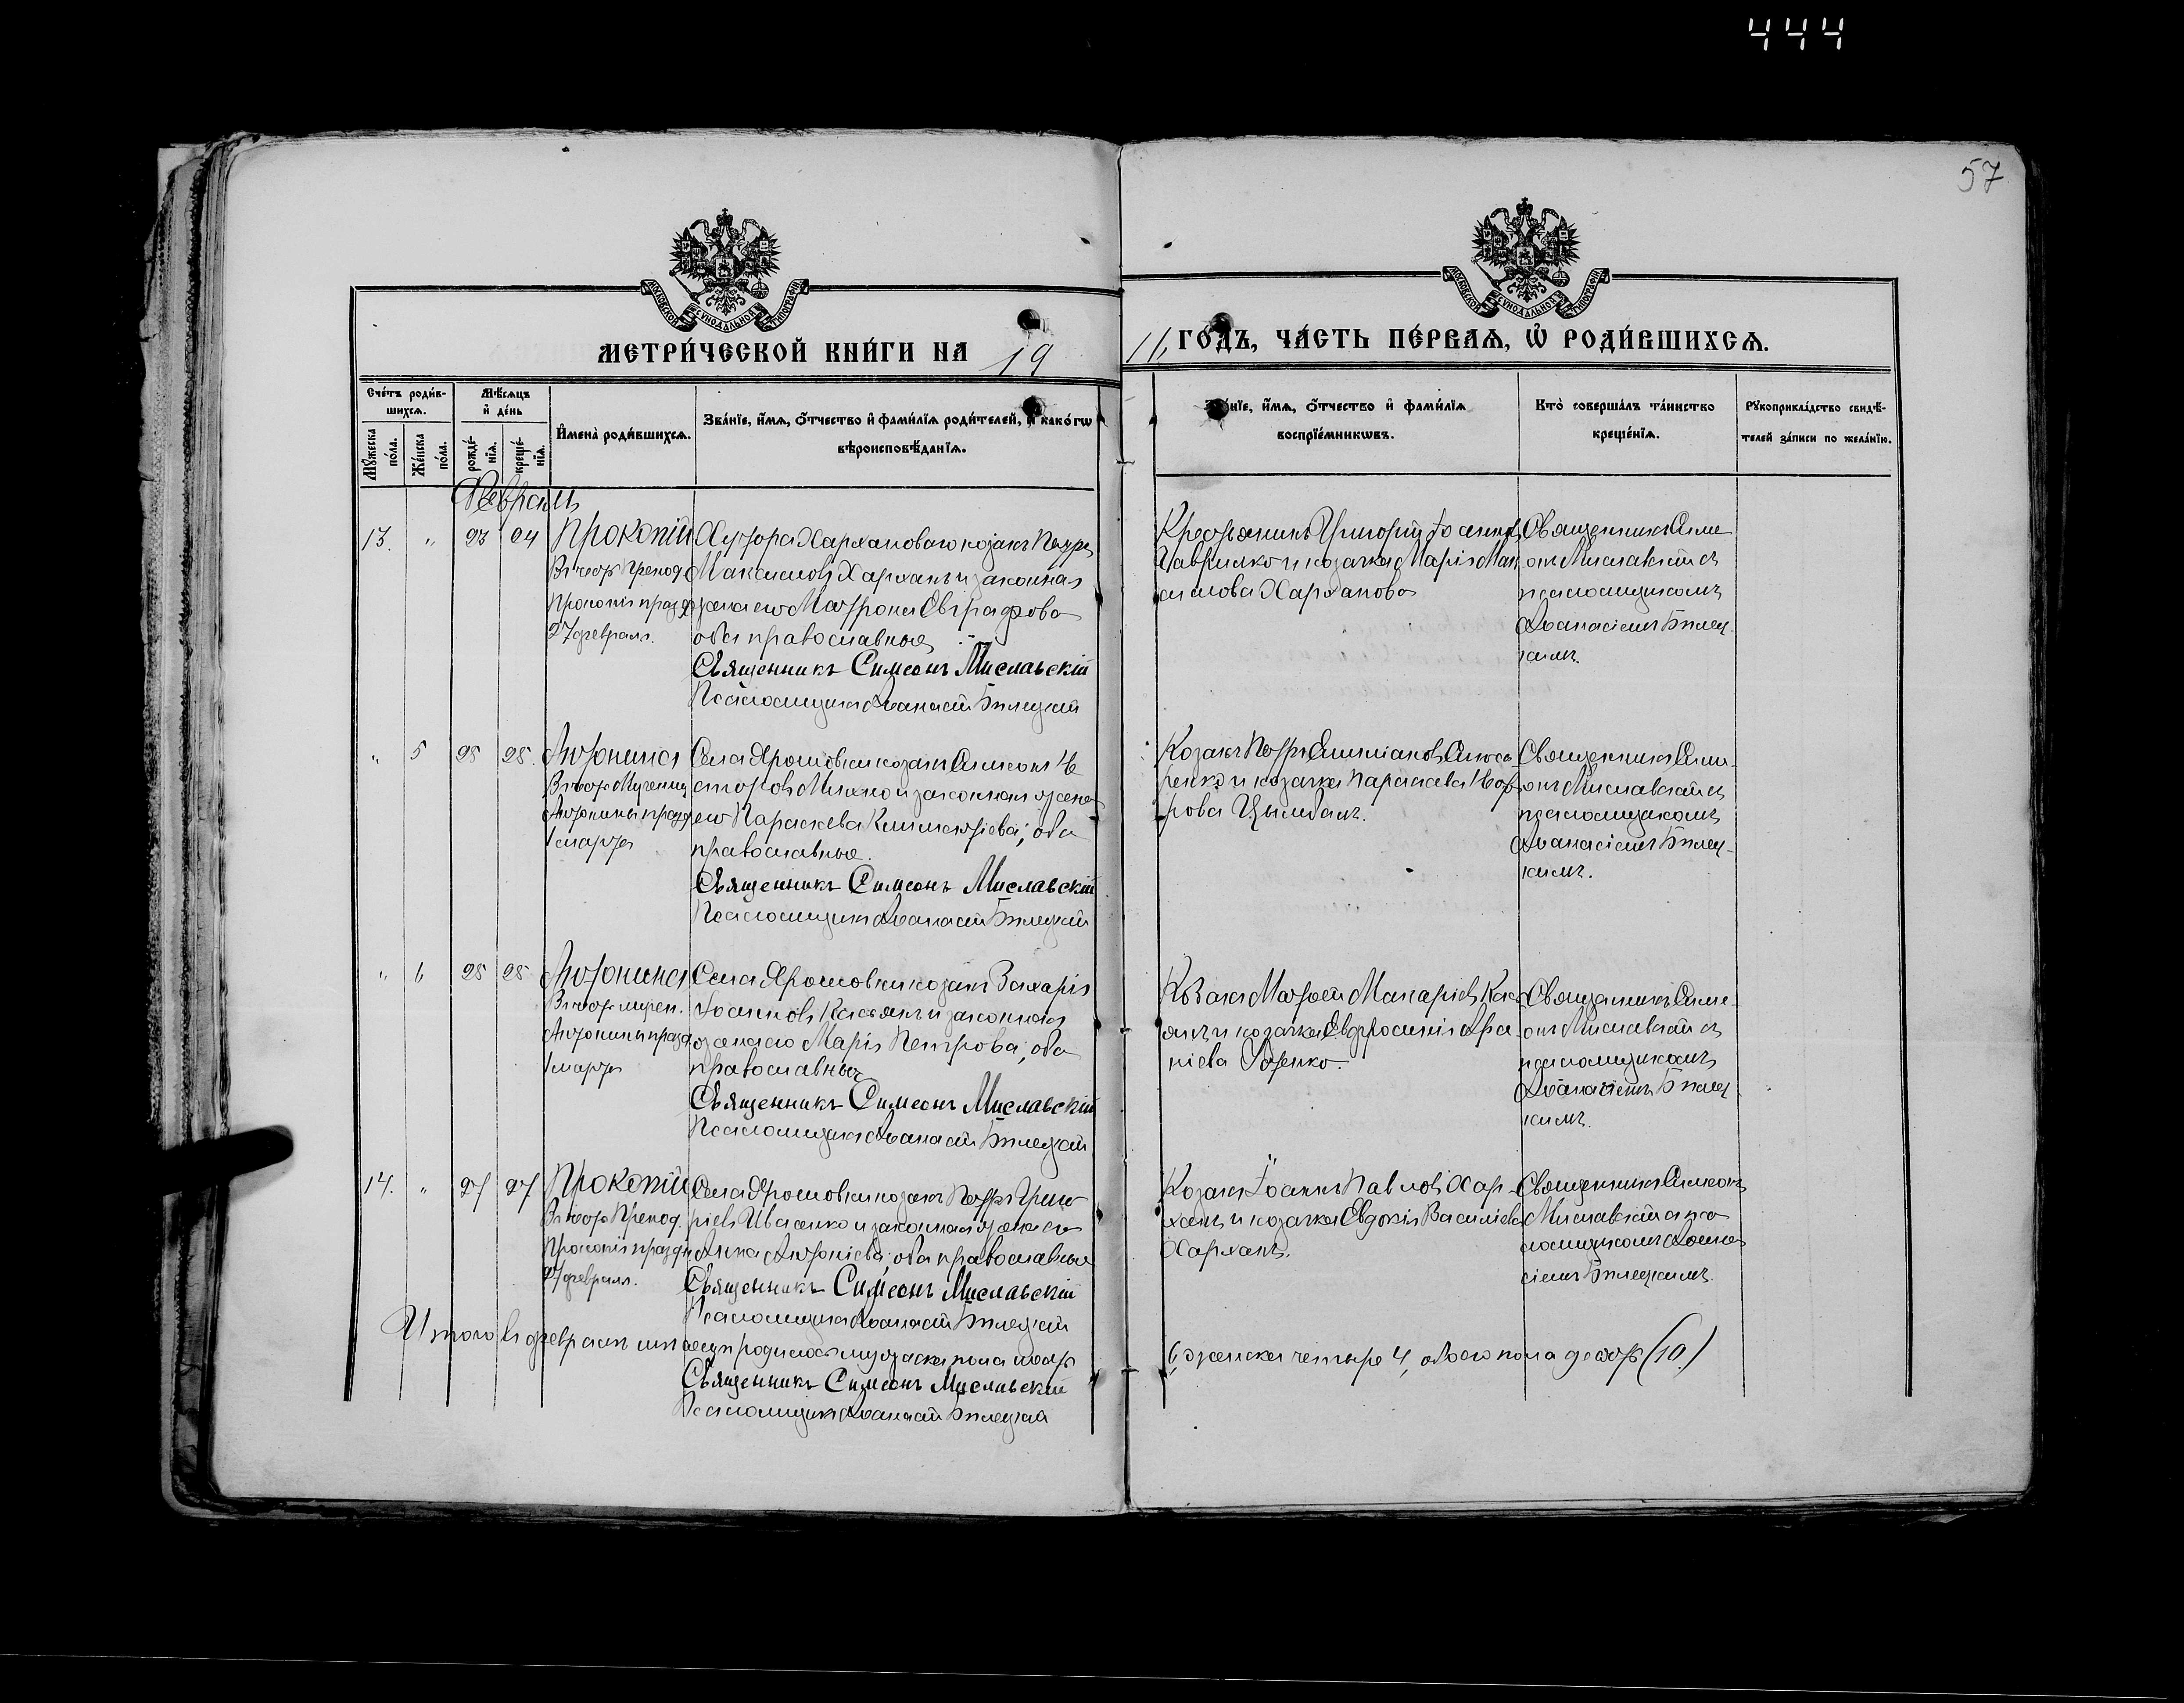 444
57
МОСКОВСКОЙ СѴНОДАЛЬНОЙ ТИПОГРАФІИ
МОСКОВСКОЙ СѴНОДАЛЬНОЙ ТИПОГРАФІИ
МЕТРИ́ЧЕСКОЙ КНИ́ГИ НА 19
11 ГО́ДЪ, ЧА́СТЬ ПЕ́РВАѦ, Ѡ҆ РОДИ́ВШИХСѦ.
Сче́тъ роди́в-
шихсѧ.
Мꙋ́жеска по́ла.
Же́нска по́ла.
Мѣ́сѧцъ
и҆ де́нь
рожде́-
нїѧ.
креще́-
нїѧ.
И҆мена̀ роди́вшихсѧ.
Зва́нїе, и҆́мѧ, ѻ҆́тчество и҆ фами́лїѧ роди́телей, и҆ како́гѡ
вѣроисповѣ́данїѧ.
Зва́нїе, и҆́мѧ, ѻ҆́тчество и҆ фами́лїѧ
воспрїе́мникѡвъ.
Кто̀ соверша́лъ та́инство
креще́нїѧ.
Рꙋкоприкла́дство свидѣ́-
телей за́писи по жела́нїю.
Февраль
13. " 23 24
Прокопій
В честь Препод.
Прокопія празд.
27 февраля.
Хутора Харханового козакъ Петръ
Максимовъ Харханъ и законная
жена его Матрона Евграфова
оба православные
Священникъ Симеонъ Миславскій
Псаломщикъ Аѳанасій Билецкій
Крестьянинъ Григорій Іоанновъ
Гаврилко и козачка Марія Мак
симова Харханова
Священникъ Симе
онъ Миславскій съ
псаломщикомъ
Аѳанасіемъ Билец-
кимъ.
" 5 25 25.
Антонина
В честь Мученицы
Антонины празд
1 марта
Села Ярошовки козакъ Симеонъ Не
сторовъ Михно и законная жена
его Параскева Климентіева; оба
православные.
Священникъ Симеонъ Миславскій
Псаломщикъ Аѳанасій Билецкій
Козакъ Петръ
и козачка Параскева
рова Цымбалъ.
Священникъ Симе-
онъ Миславскій съ
псаломщикомъ
Аѳанасіемъ Билец-
кимъ.
" 6 25 25
Антонина
В честь мучен.
Антонины празд.
1 марта
Села Ярошовки козакъ Захарія
Іоанновъ Касьянъ и законная
жена его Марія Петрова; оба
православные
Священникъ Симеонъ Миславскій
Псаломщикъ Аѳанасій Билецкій
Козакъ Матѳей Макаріевъ Кась
янъ и козачка Евфросинія
Священникъ Симе-
онъ Миславскій съ
псаломщикомъ
Аѳанасіемъ Билец-
кимъ.
14. " 27 27
Прокопій
В честь Препод.
Прокопія праздн
27 февраля.
Села Ярошовки козакъ Петръ Григо
ріевъ Иваненко и законная жена его
Анна Антоніева; оба православные
Священникъ Симеонъ Миславскій
Псаломщикъ Аѳанасій Билецкій
Козакъ Іоаннъ Павловъ Хар-
ханъ и козачка Евдокія Василіева
Харханъ.
Священникъ Симеонъ
Миславскій съ пса
ломщикомъ Аѳана
сіемъ Билецкимъ.
Итого въ февралѣ мѣсяцѣ родилось мужеска пола шесть
6, женска четыре 4, обоего пола десять (10.)
Священникъ Симеонъ Миславскій
Псаломщикъ Аѳанасій Билецкій